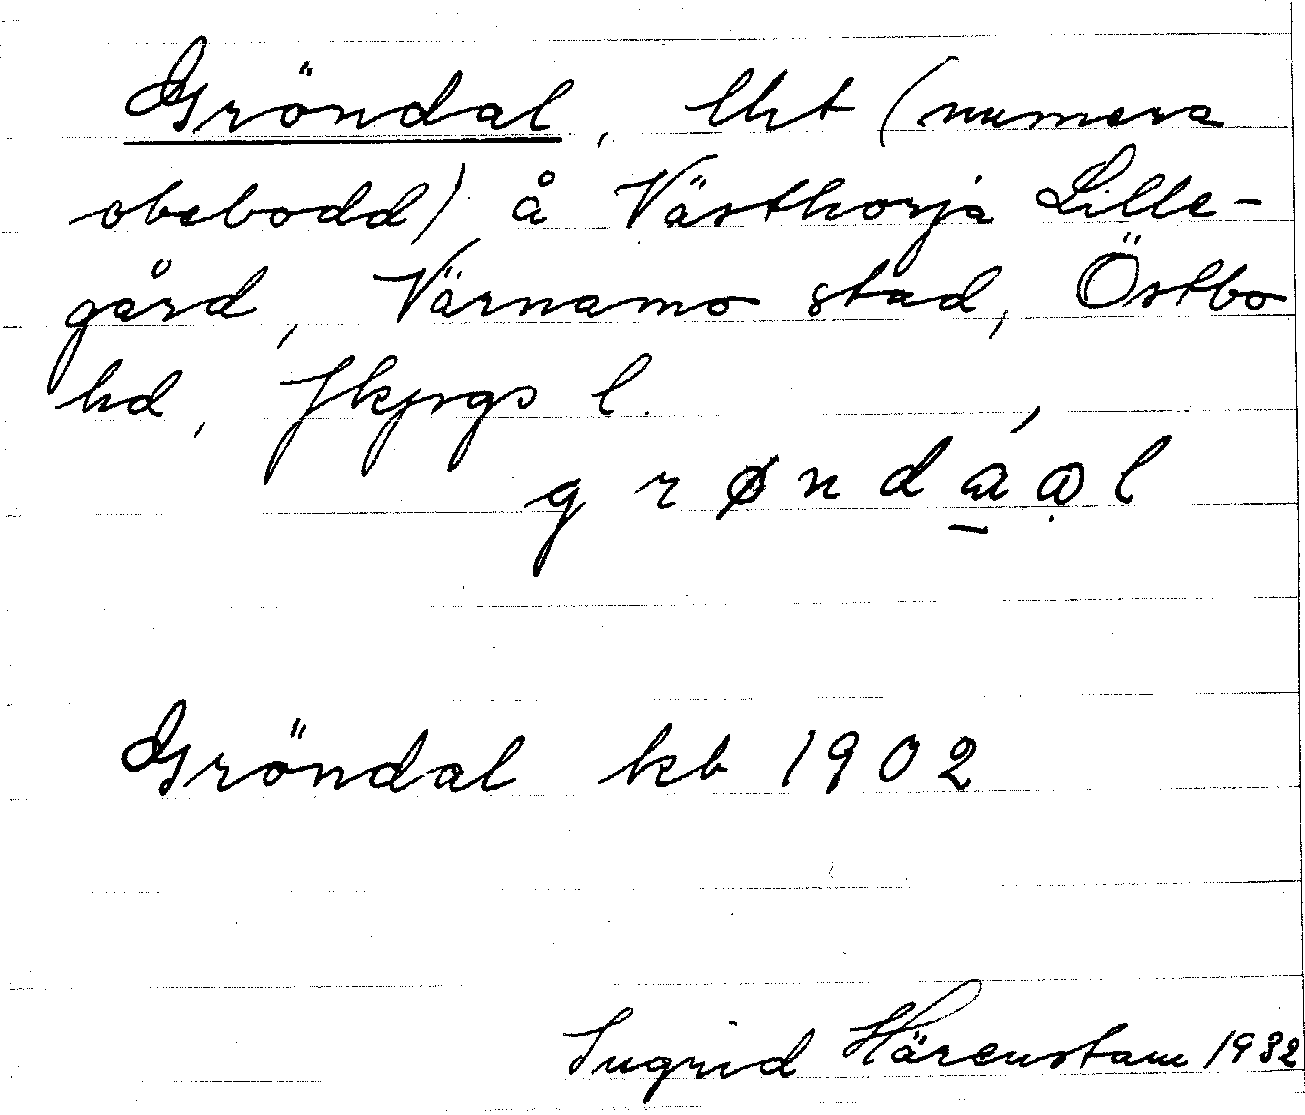 Gröndal, lht (numera
obebodd) å Västhorja Lille-
gård, Värnamo stad, Östbo
hd, Jkpgs l.
grøndàạl
Gröndal kb 1902
Ingrid Härenstam 1932